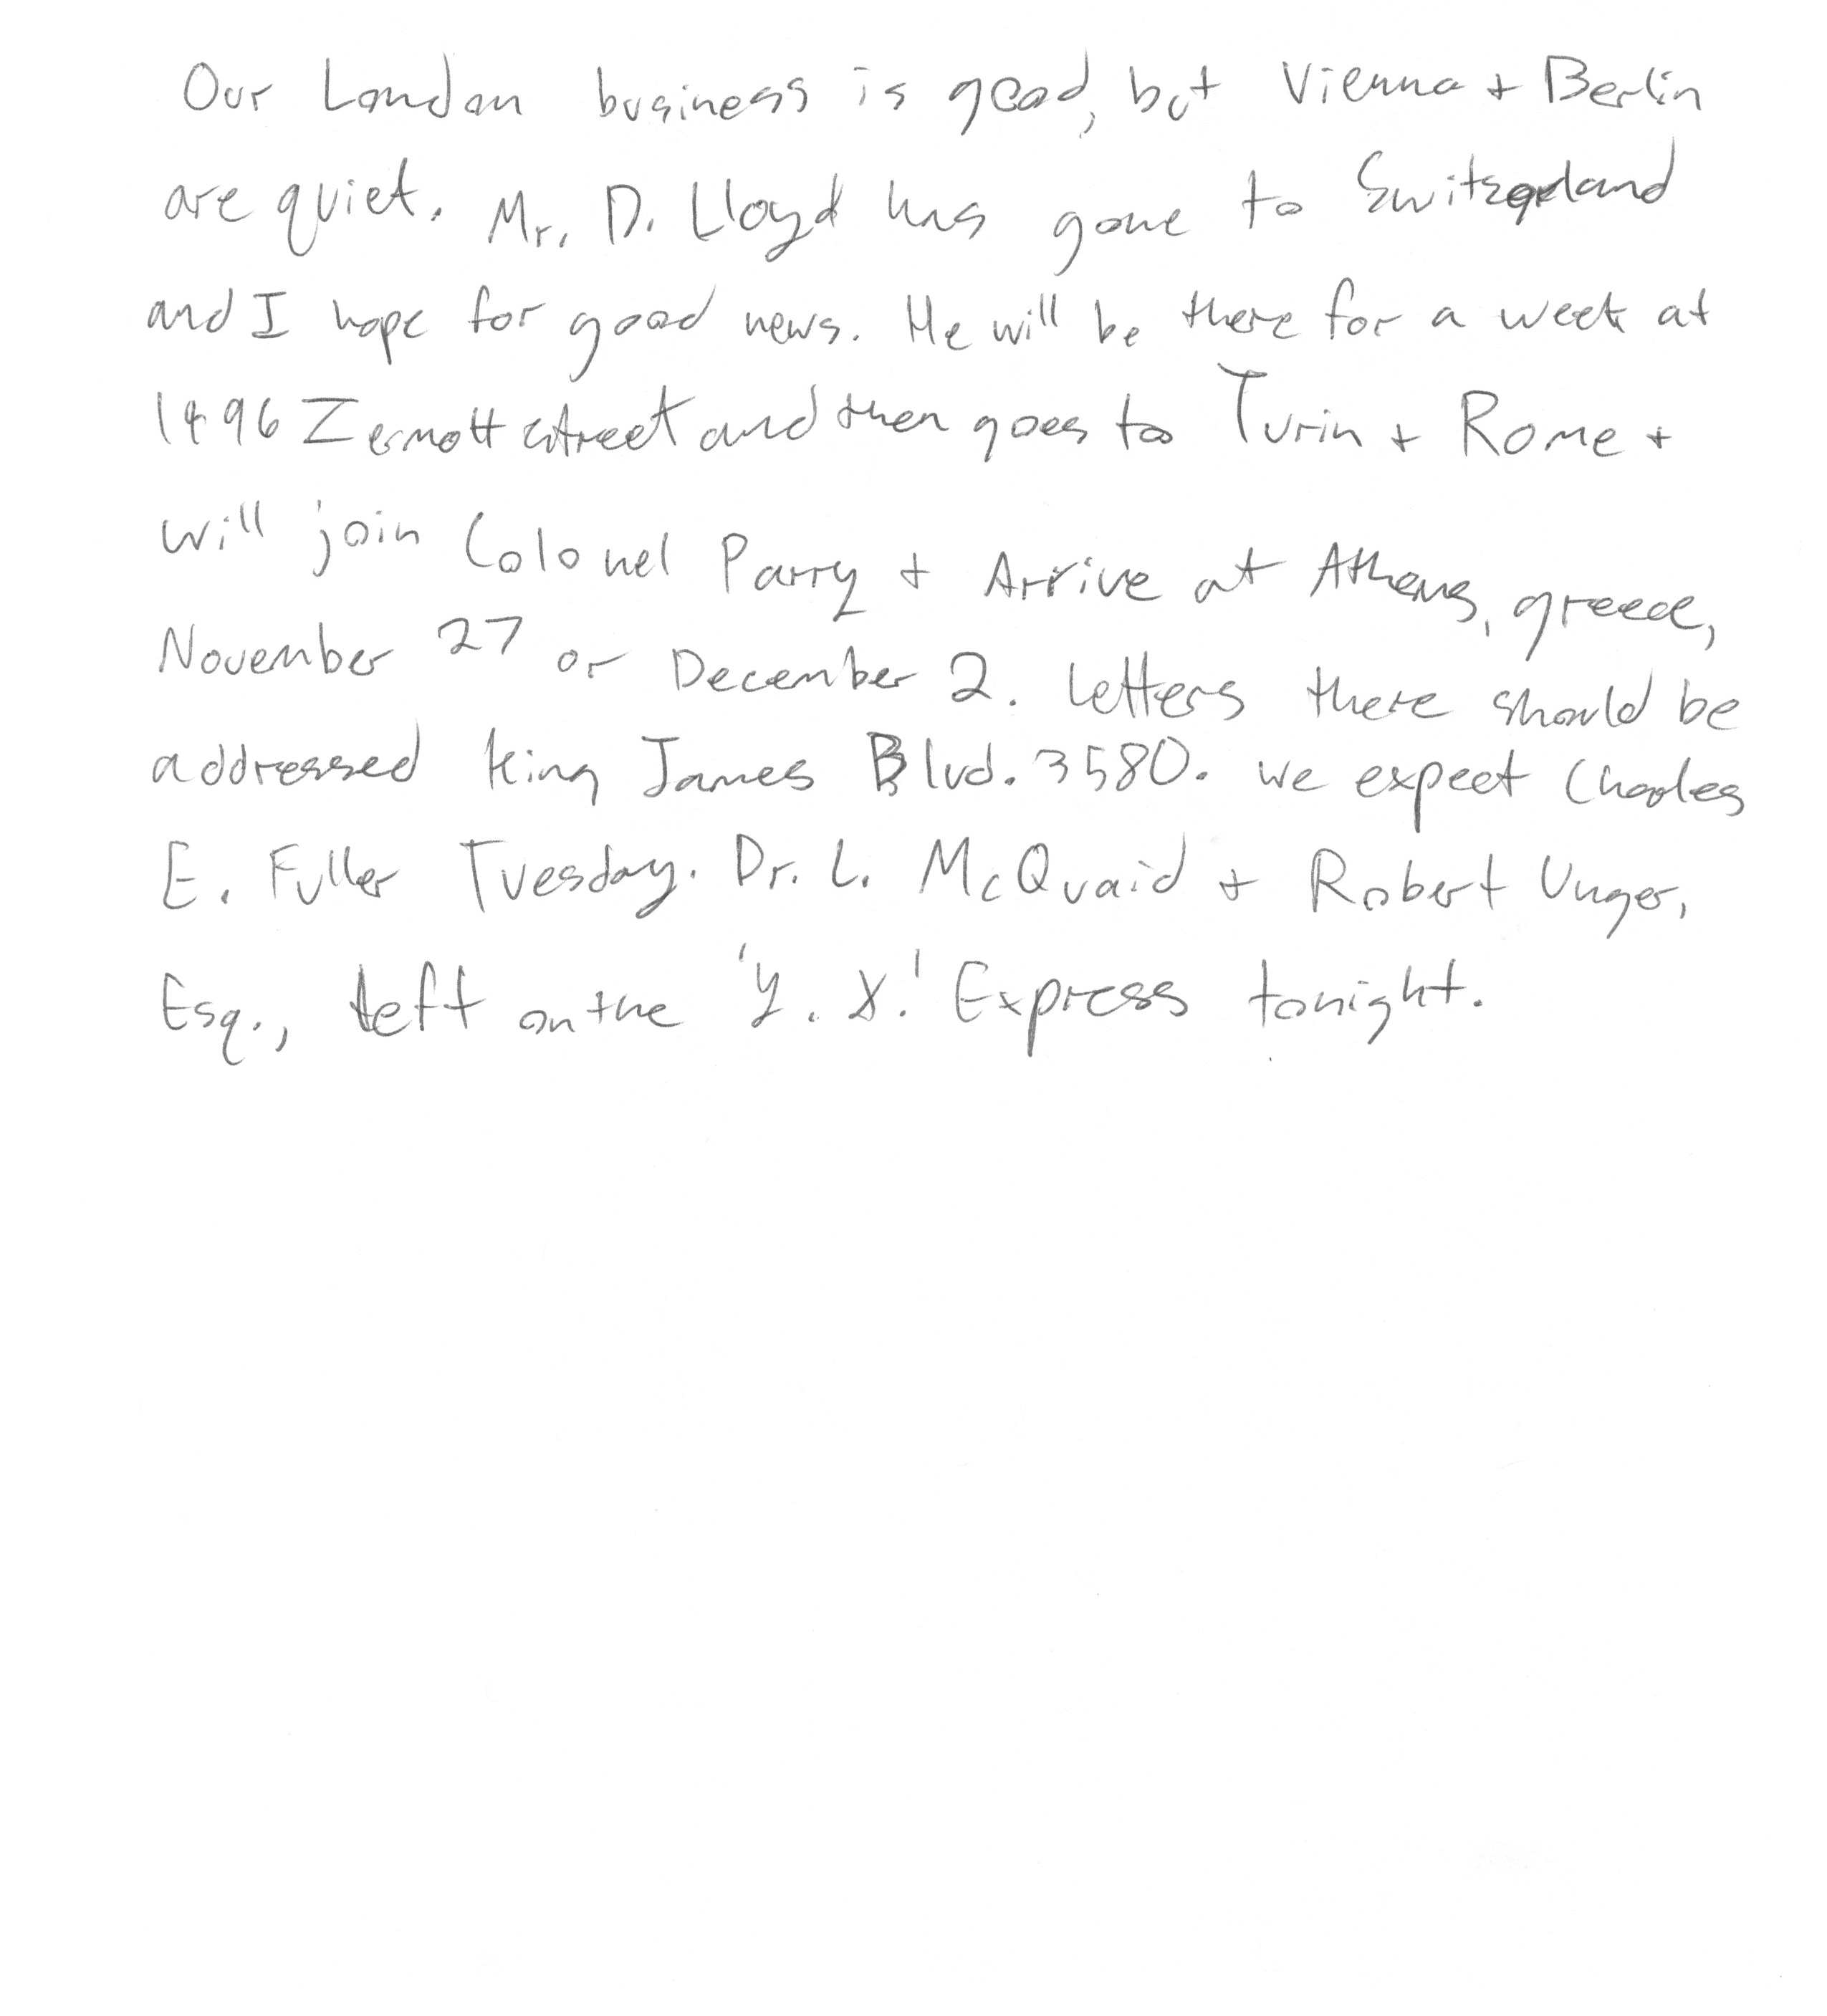 Our London business is good, but Vienna + Berlin
are quiet. Mr. D. Lloyd has gone to Switzerland
and I hope for good news. He will be there for a week at
1496 Zermott street and then goes to Turin + Rome +
will join Colonel Parry + Arrive at Athens, greece,
November 27 or December 2. letters there should be
addressed king James Blvd. 3580. we expect Charles
E. Fuller Tuesday. Dr. L. McQuaid + Robert Unger,
Esq., left on the 'Y. X.' Express tonight.